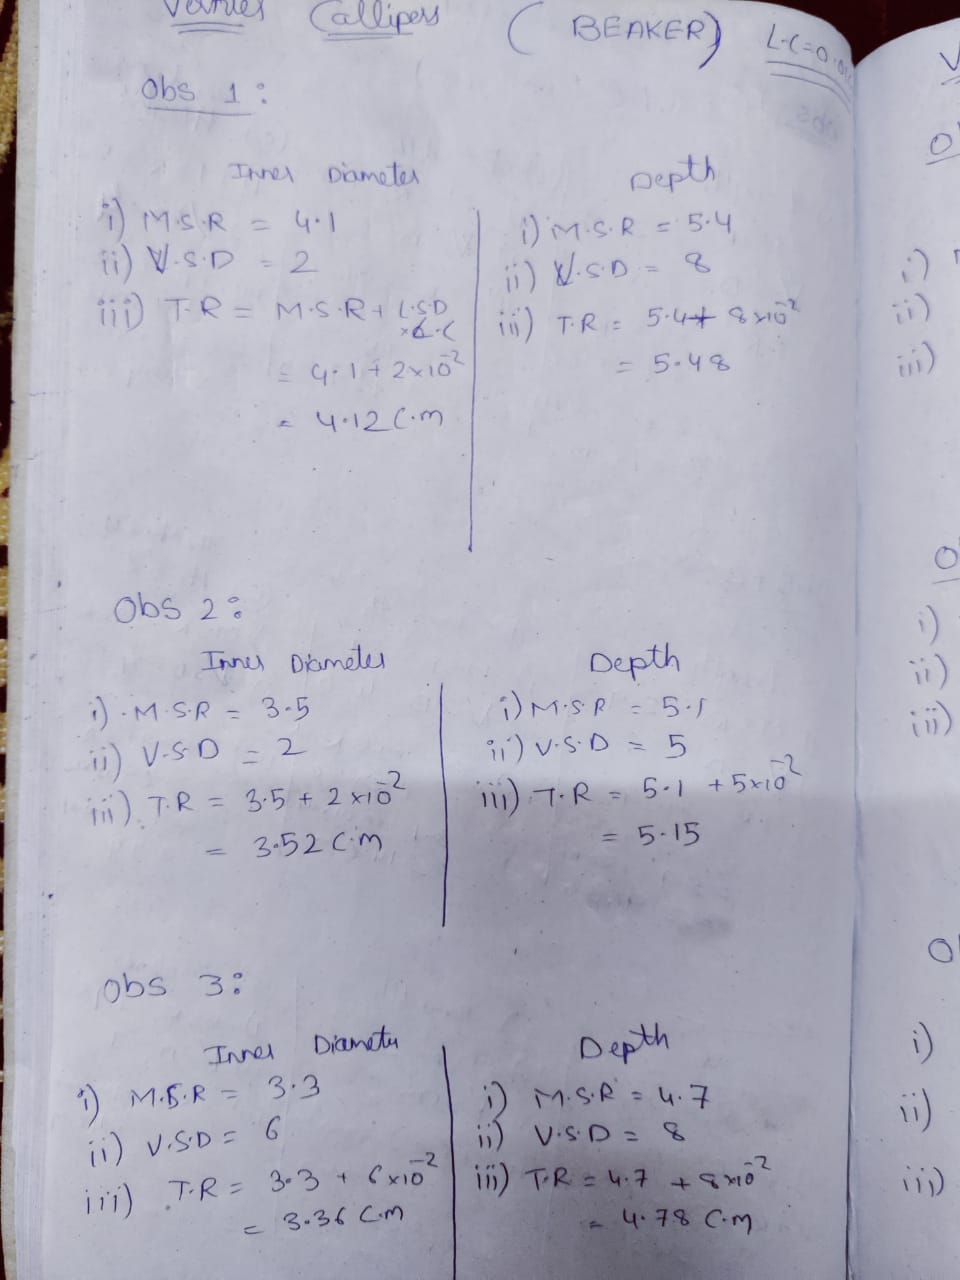 Vernier Callipers (BEAKER) L.C=0.01
Obs 1:
Inner Diameter
i) M.S.R = 4.1
ii) V.S.D = 2
iii) T.R = M.S.R + L.S.D
×L.C
= 4.1 + 2×10⁻²
= 4.12 C.m
Depth
i) M.S.R = 5.4
ii) V.S.D = 8
iii) T.R = 5.4+ 8×10⁻²
= 5.48
Obs 2:
Inner Diameter
i) M.S.R = 3.5
ii) V.S.D = 2
iii) T.R = 3.5 + 2×10⁻²
= 3.52 C.m
Depth
i) M.S.R = 5.1
ii) V.S.D = 5
iii) T.R = 5.1 + 5×10⁻²
= 5.15
Obs 3:
Inner Diameter
i) M.S.R = 3.3
ii) V.S.D = 6
iii) T.R = 3.3 + 6×10⁻²
= 3.36 C.m
Depth
i) M.S.R = 4.7
ii) V.S.D = 8
iii) T.R = 4.7 + 8×10⁻²
= 4.78 C.m
i)
ii)
iii)
i)
ii)
iii)
i)
ii)
iii)